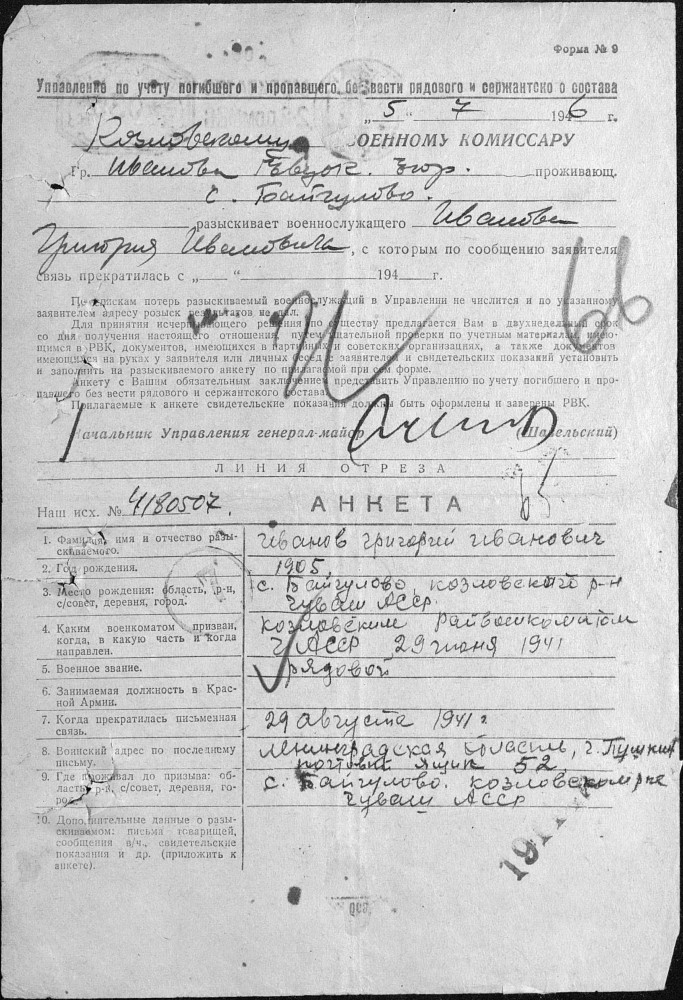 Форма № 9
Управление по учету погибшего и пропавшего без вести рядового и сержантского состава
„5“ 7 1946 г.
Козловскому ВОЕННОМУ КОМИССАРУ
Гр. Иванова Егор. проживающ.
с. Байгулово.
разыскивает военнослужащего Иванова
Григория Ивановича, с которым по сообщению заявителя
связь прекратилась с „ “ 194 г.
По спискам потерь разыскиваемый военнослужащий в Управлении не числится и по указанному
заявителем адресу розыск результатов не дал.
Для принятия исчерпывающего решения по существу предлагается Вам в двухнедельный срок
со дня получения настоящего отношения, путем тщательной проверки по учетным материалам, имею-
щимся в РВК, документов, имеющихся в партийных и советских организациях, а также документов
имеющихся на руках у заявителя или личных бесед с заявителем и свидетельских показаний установить
и заполнить на разыскиваемого анкету по прилагаемой при сем форме.
Анкету с Вашим обязательным заключением представить Управлению по учету погибшего и про-
павшего без вести рядового и сержантского состава.
Прилагаемые к анкете свидетельские показания должны быть оформлены и заверены РВК.
66
Начальник Управления генерал-майор (Шавельский)
ЛИНИЯ ОТРЕЗА
Наш исх. № 4180507. АНКЕТА
65
1. Фамилия, имя и отчество разы-
скиваемого.
Иванов Григорий Иванович
2. Год рождения.
1905
3. Место рождения: область, р-н,
с/совет, деревня, город.
с. Байгулово, Козловского р-н
Чуваш АССР.
4. Каким военкоматом призван,
когда, в какую часть и когда
направлен.
Козловским Райвоенкоматом
Ч АССР 29 июня 1941
5. Военное звание.
рядовой
6. Занимаемая должность в Крас-
ной Армии.
7. Когда прекратилась письменная
связь.
29 августа 1941 г
8. Воинский адрес по последнему
письму.
Ленинградская область, г. Пушкин
почтовый ящик 52
9. Где проживал до призыва: об-
ласть, р-н, с/совет, деревня, го-
род.
с. Байгулово. Козловском рне
Чуваш АССР
10. Дополнительные данные о разы-
скиваемом: письма товарищей,
сообщения в/ч., свидетельские
показания и др. (приложить к
анкете).